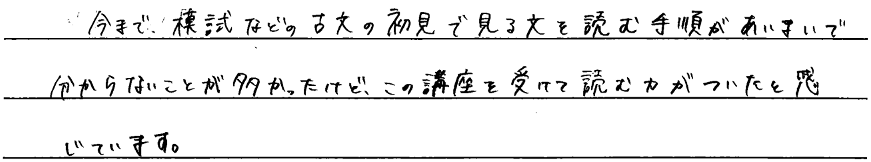 今まで、模試などの古文の初見で見る文を読む手順があいまいで
分からないことが多かったけど、この講座を受けて読む力がついたと感
じています。